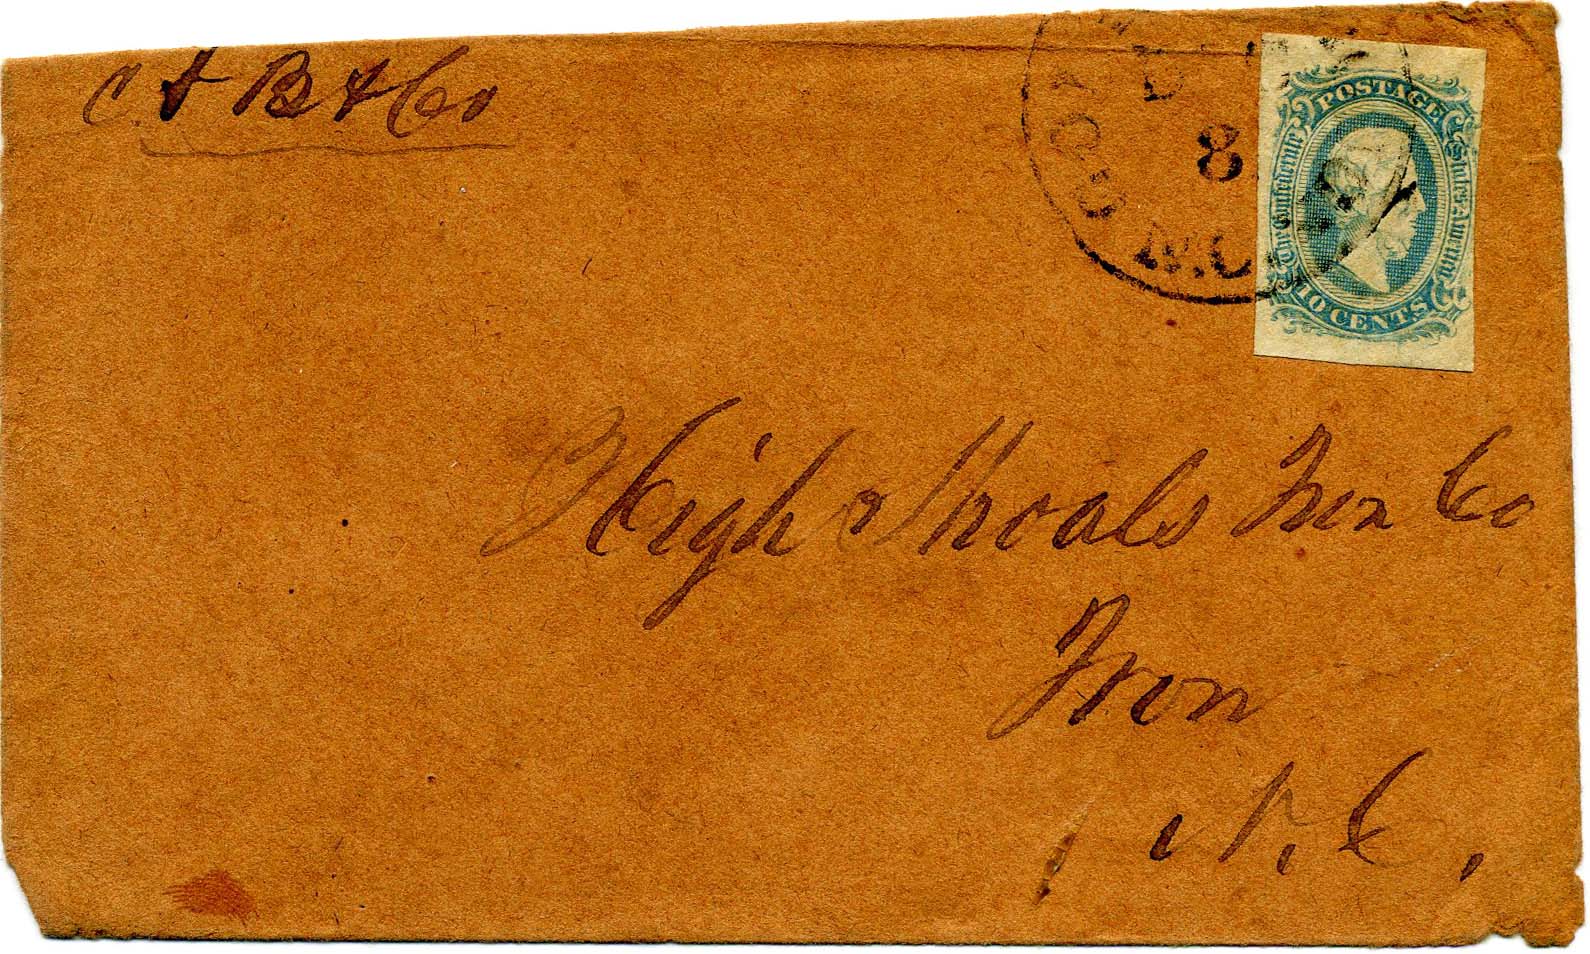 C A B & Co
8
N.C.
POSTAGE
The Confederate States America
10 CENTS
High Shoals Iron Co
Iron
N.C.